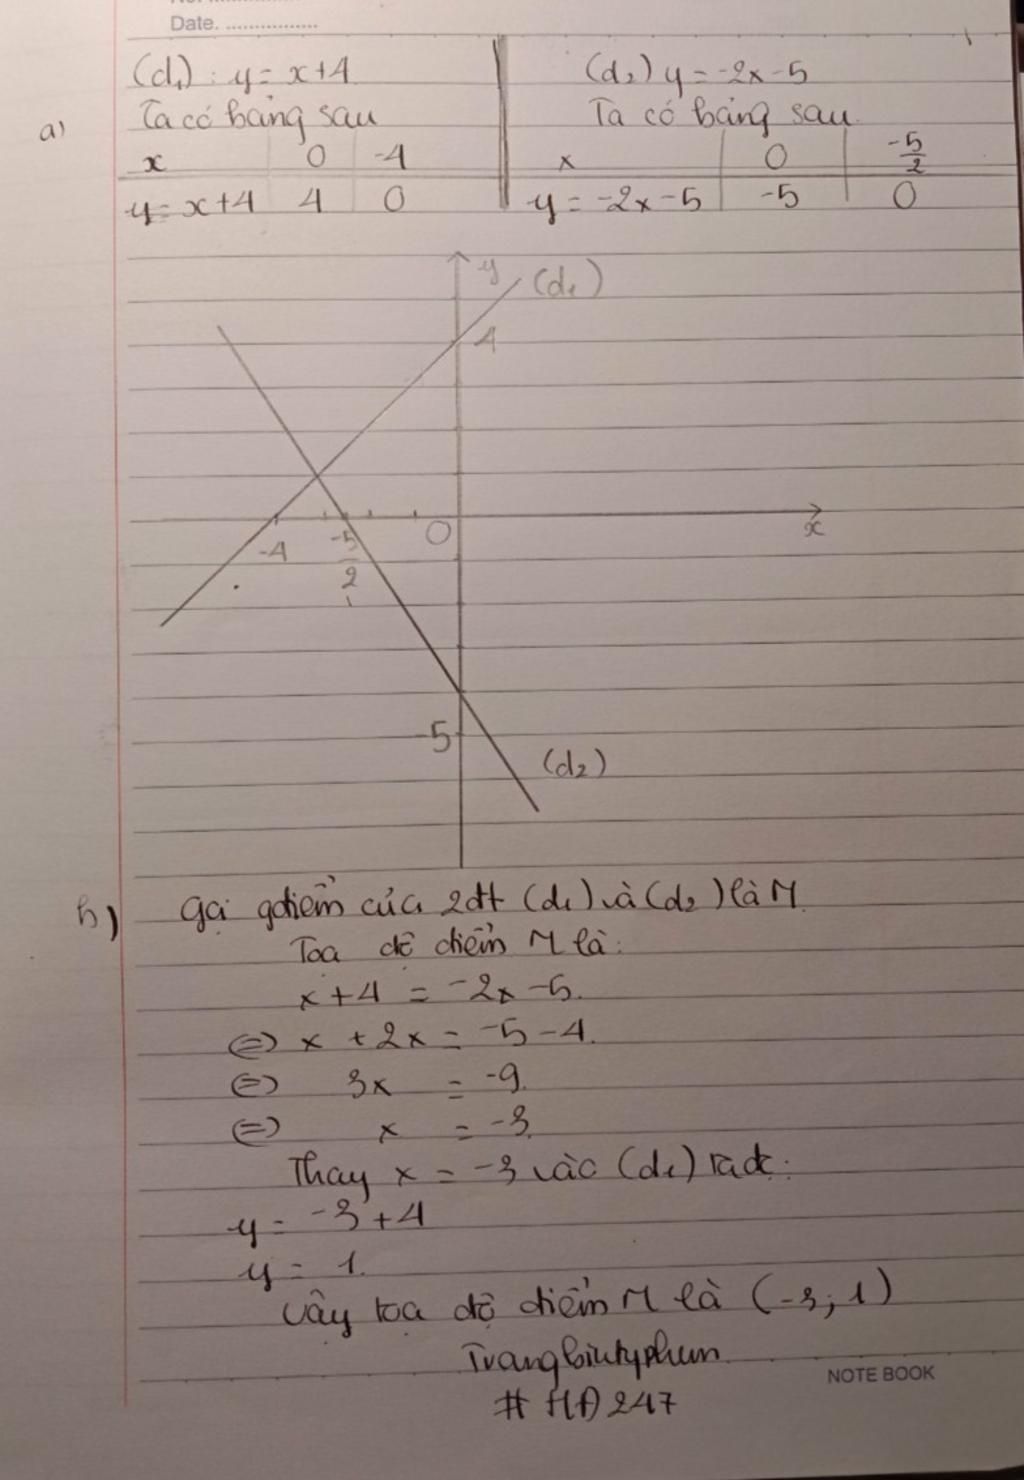 Date. ................
(d₁) : y = x+4
(d₂) y = -2x -5
a)
Ta có bảng sau
Ta có bảng sau.
x 0 -4
x 0 -5/2
y = x+4 4 0
y = -2x -5 -5 0
y
(d₁)
4
O
x
-4
-5/2
-5
(d₂)
b) gọi gđiểm của 2đt (d₁) và (d₂) là M.
Toạ độ điểm M là:
x+4 = -2x -5.
⇔ x + 2x = -5 -4.
⇔ 3x = -9.
⇔ x = -3.
Thay x = -3 vào (d₁) ta đc:
y = -3 +4
y = 1.
Vậy toạ độ điểm M là (-3; 1)
NOTE BOOK